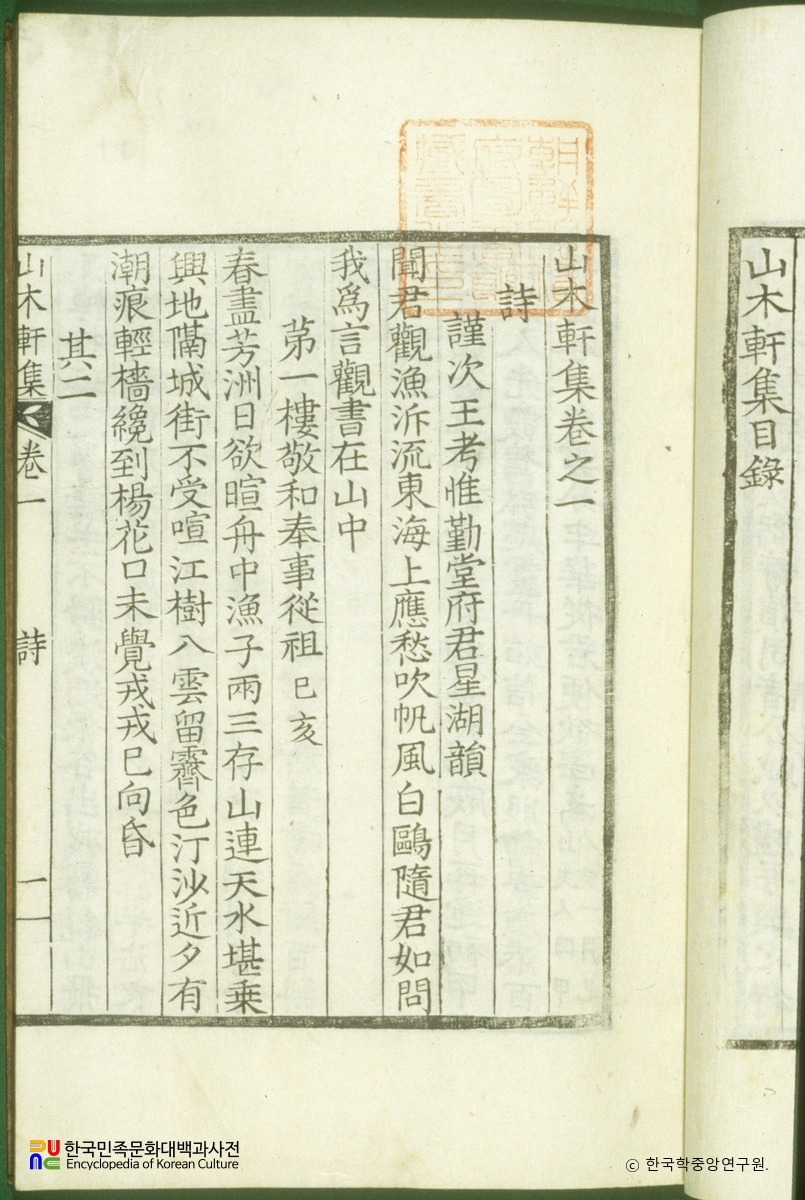 山木軒集目錄
山木軒集卷之一
詩
謹次王考惟勤堂府君星湖韻
聞君觀漁泝流東海上應愁吹帆風白鷗隨君如問
我爲言觀書在山中
第一樓敬和奉事從祖 巳亥
春盡芳洲日欲暄舟中漁子兩三存山連天水堪乘
興地隔城街不受喧江樹入雲留霽色汀沙近夕有
潮痕輕檣纔到楊花口未覺戎戎巳向昏
其二
山木軒集 卷一 詩 一
한국민족문화대백과사전
Encyclopedia of Korean Culture
ⓒ 한국학중앙연구원.